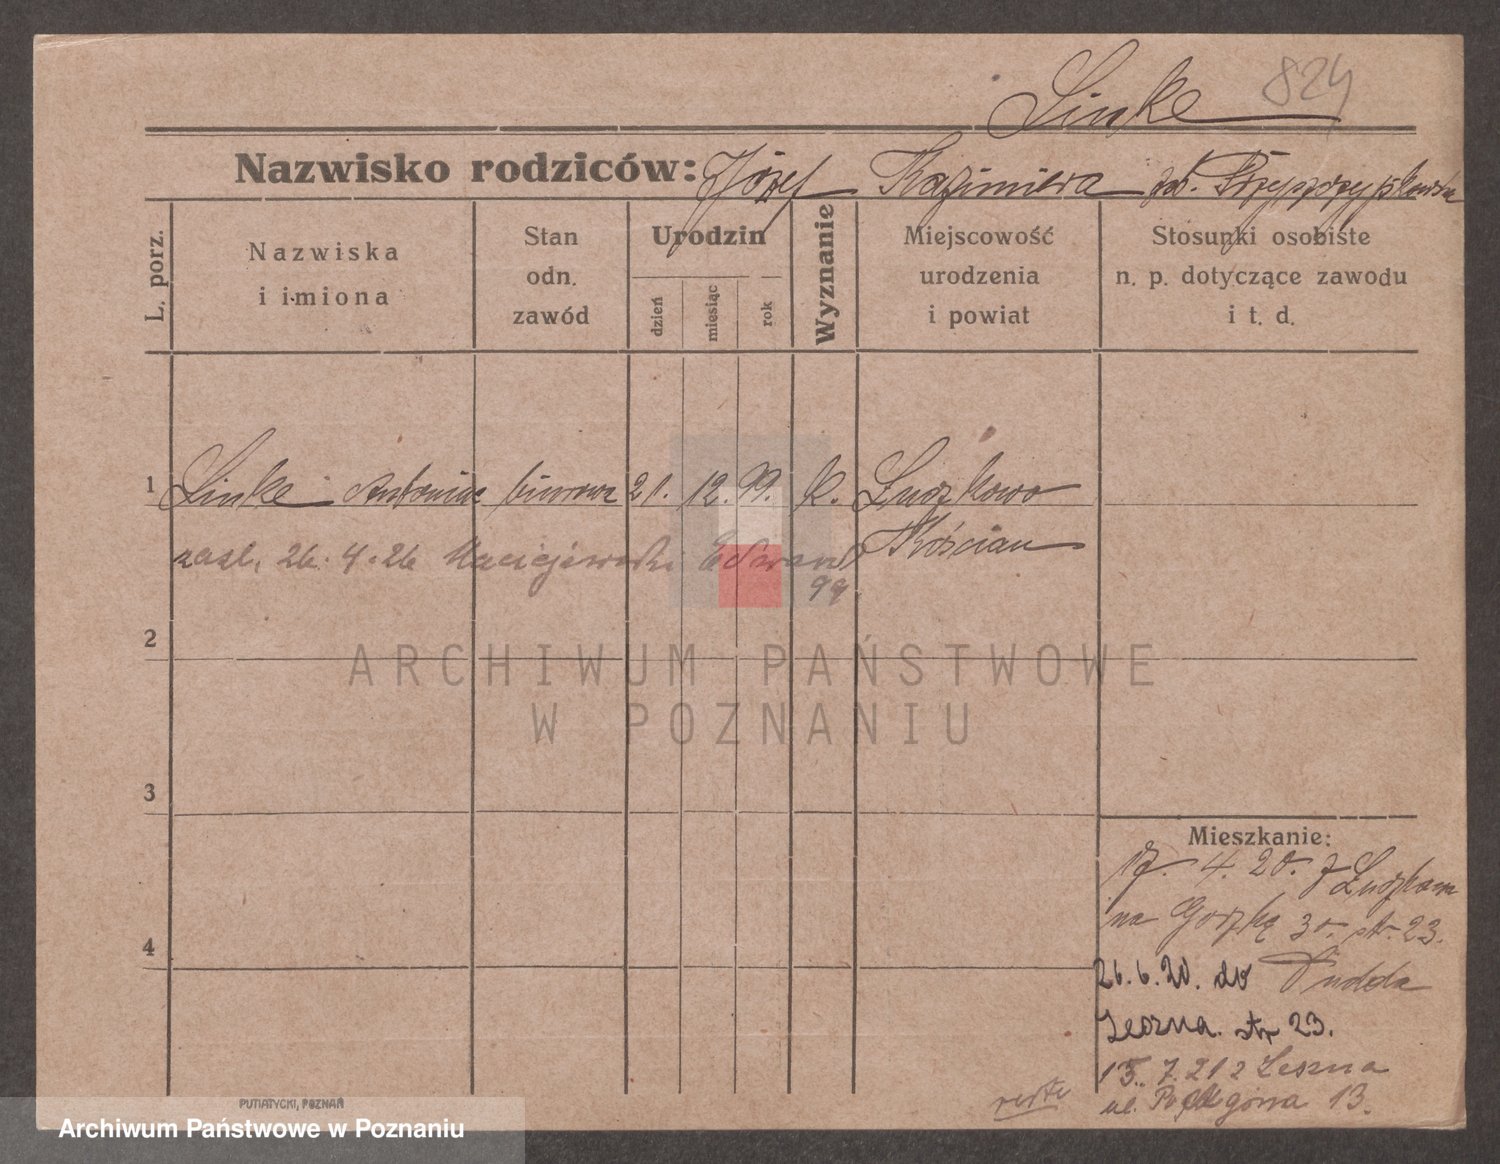 Linke 824
Nazwisko rodziców: Józef Kazimiera
L. porz.
Nazwiska
i imiona
Stan
odn.
zawód
Urodzin
dzień
miesiąc
rok
Wyznanie
Miejscowość
urodzenia
i powiat
Stosunki osobiste
n. p. dotyczące zawodu
i t. d.
1 Linke Antonina biurowa 21. 12. 99. k. Łuszkowo
Kościan
zaśl. 26. 4. 26 Edward
99
2
ARCHIWUM PAŃSTWOWE
W POZNANIU
3
Mieszkanie:
17. 4. 20. z Łuszkowa
na 30. str. 23.
4
26. 6. 20. do
Leszna. str 23.
15. 7. 21 z Leszna
ul. Podgórna 13.
PUTIATYCKI, POZNAŃ
Archiwum Państwowe w Poznaniu